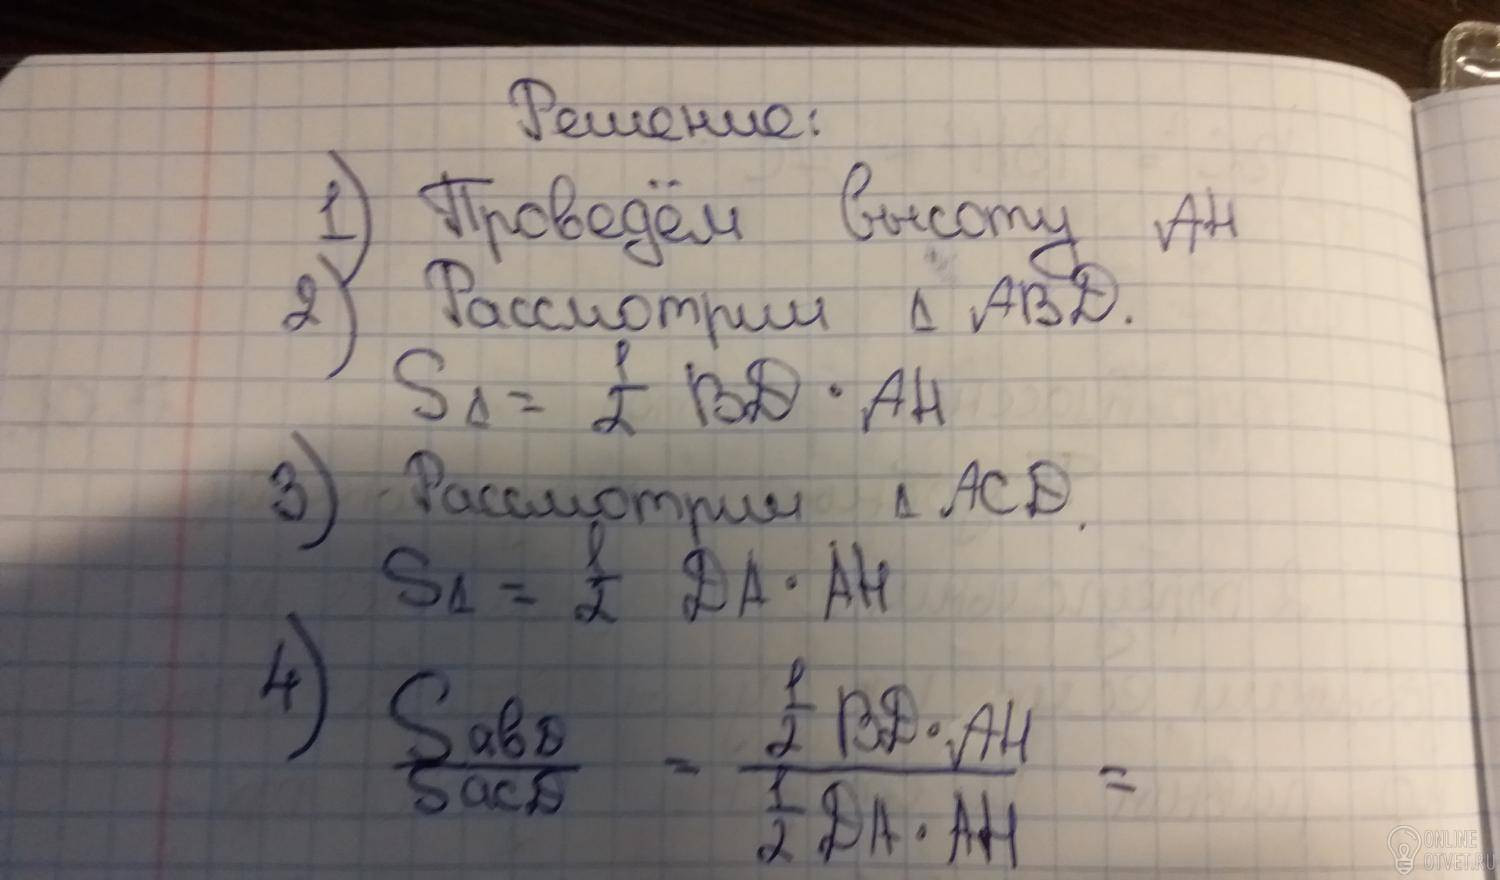 Решение:
1) Проведём высоту AH
2) Рассмотрим Δ ABD.
SΔ = 1/2 BD · AH
3) Рассмотрим Δ ACD.
SΔ = 1/2 DA · AH
4) SABD/SACD = 1/2 BD · AH / 1/2 DA · AH =
ONLINE
OTVET.RU